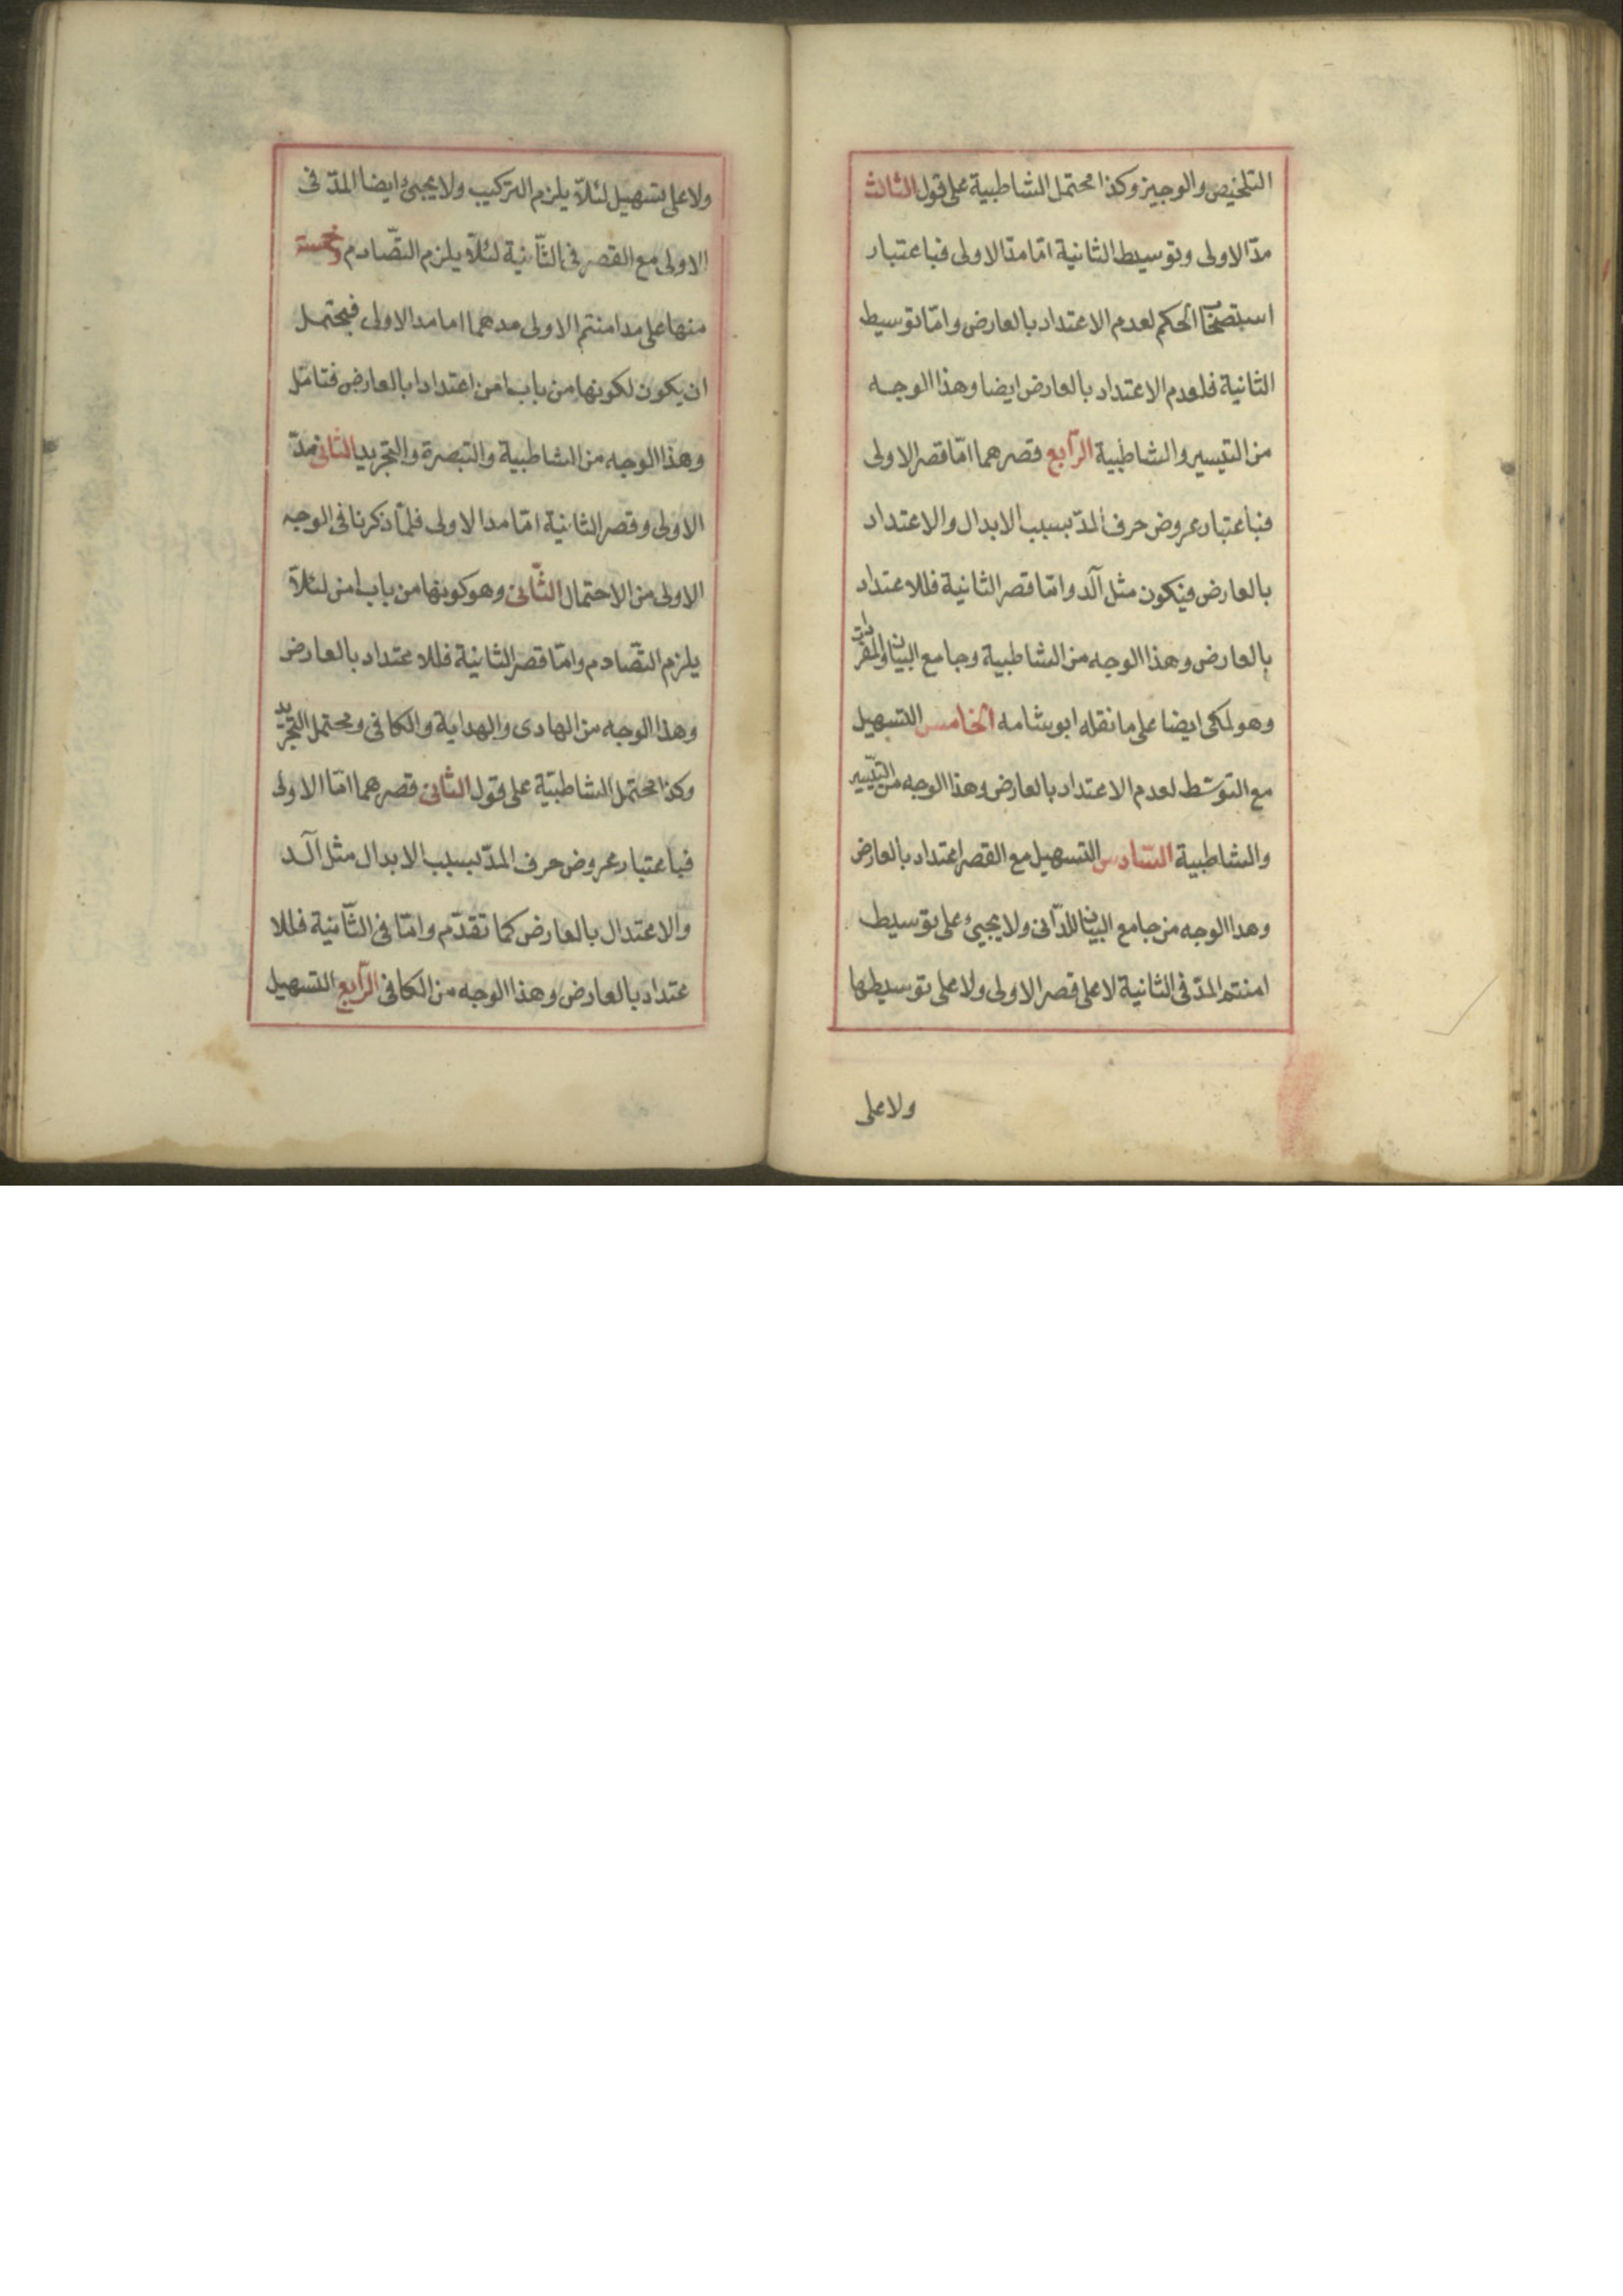 التلخيص والوجيز وكذا محتمل الشاطبية على قول الثالث
مدّ الاولى وتوسيط الثانية امّا مدّ الاولى فباعتبار
استصحاب الحكم لعدم الاعتداد بالعارض وامّا توسيط
الثانية فلعدم الاعتداد بالعارض ايضا وهذا الوجه
من التيسير والشاطبية الرّابع قصرهما امّا قصر الاولى
فباعتبار عروض حرف المدّ بسبب الابدال والاعتداد
بالعارض فيكون مثل آلد وامّا قصر الثانية فللاعتداد
بالعارض وهذا الوجه من الشاطبية وجامع البيان والمفردات
وهو لمكى ايضا على ما نقله ابو شامه الخامس التسهيل
مع التوسّط لعدم الاعتداد بالعارض وهذا الوجه من التيسير
والشاطبية السّادس التسهيل مع القصر اعتداد بالعارض
وهذا الوجه من جامع البيان للدّانى ولا يجيئ على توسيط
امنتم المدّ فى الثانية لا على قصر الاولى ولا على توسيطها
ولا على
ولا على تسهيل لئلاّ يلزم التركيب ولا يجيئ ايضا المدّ فى
الاولى مع القصر فى الثّانية لئلاّ يلزم التصّادم وخمسة
منها على مد امنتم الاولى مدهما اما مد الاولى فيحتمل
ان يكون لكونها من باب امن اعتدادا بالعارض فتامّل
وهذا الوجه من الشاطبية والتبصرة والتجريد الثانى مدّ
الاولى وقصر الثانية امّا مد الاولى فلمّا ذكرنا فى الوجه
الاولى من الاحتمال الثّانى وهو كونها من باب امن لئلاّ
يلزم التصّادم وامّا قصر الثانية فللاعتداد بالعارض
وهذا الوجه من الهادى والهداية والكافى ومحتمل التجريد
وكذا محتمل الشاطبيّة على قول الثانى قصرهما امّا الاولى
فباعتبار عروض حرف المدّ بسبب الابدال مثل آلد
والاعتدال بالعارض كما تقدّم وامّا فى الثّانية فللا
عتداد بالعارض وهذا الوجه من الكافى الرّابع التسهيل